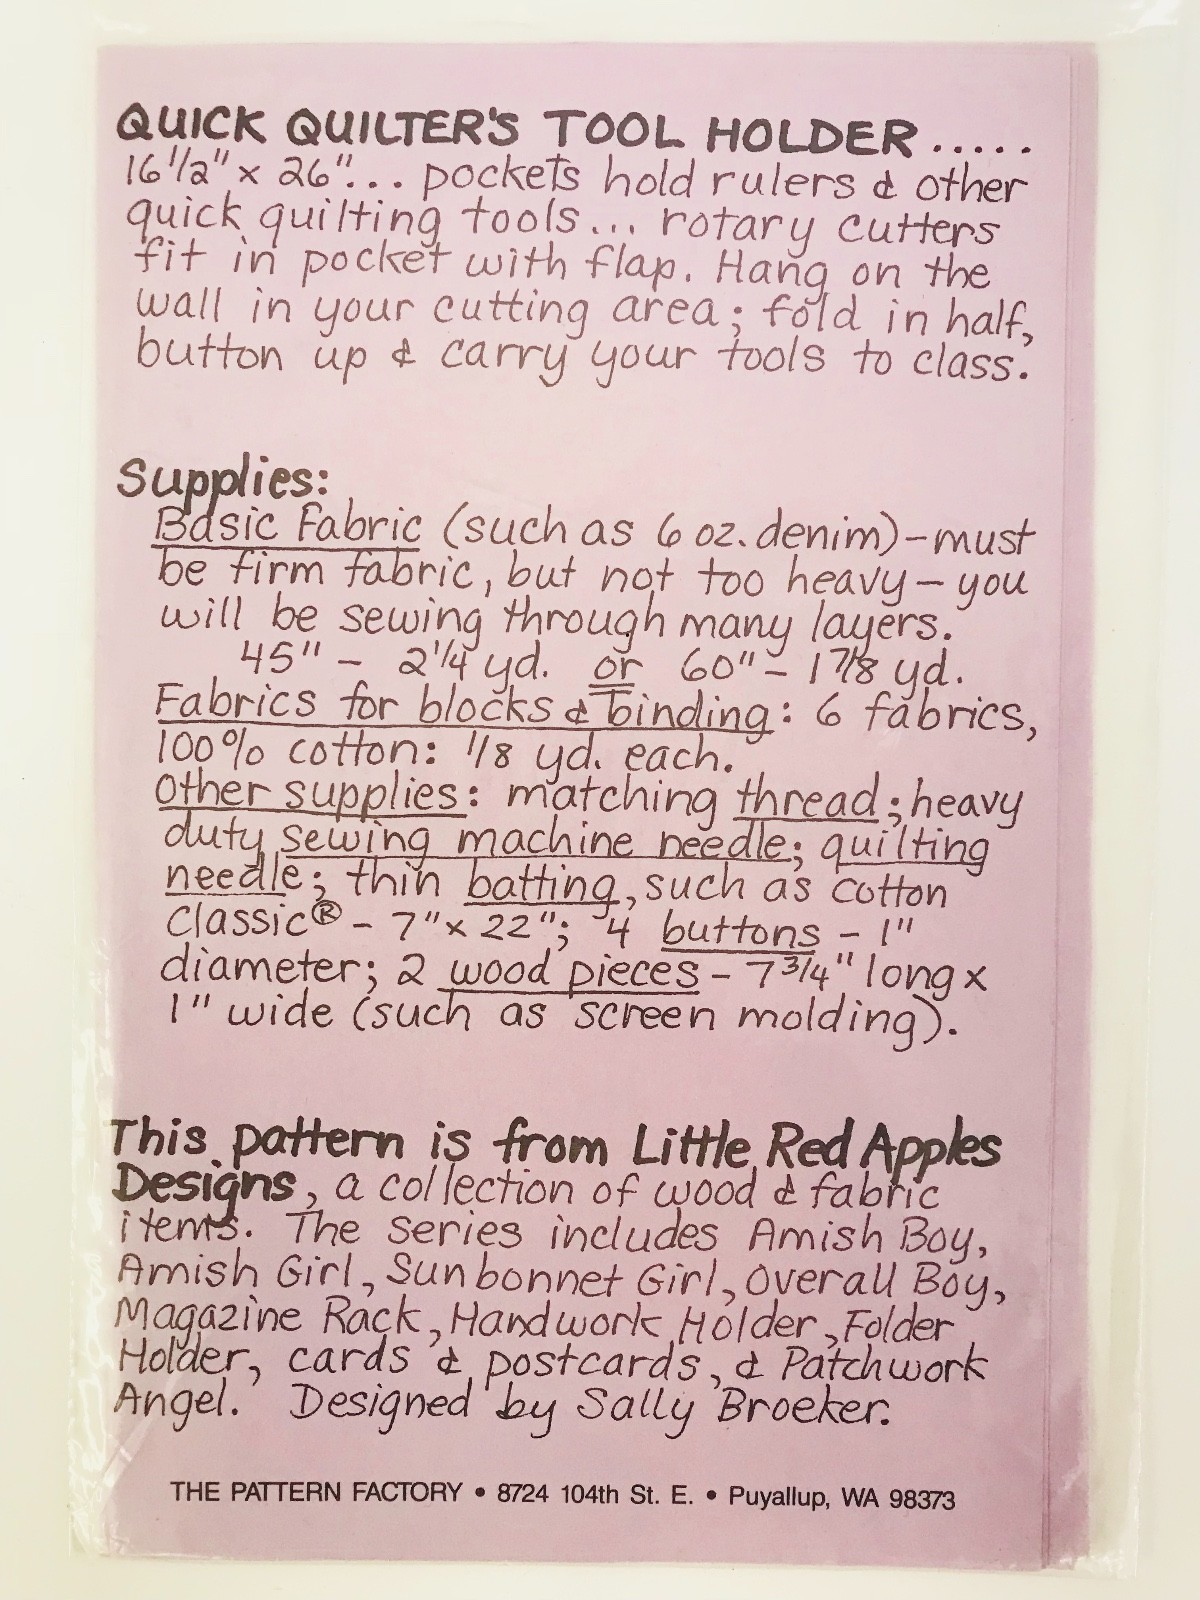 QUICK QUILTER'S TOOL HOLDER.....
16 1/2" x 26"... pockets hold rulers & other
quick quilting tools... rotary cutters
fit in pocket with flap. Hang on the
wall in your cutting area; fold in half,
button up & carry your tools to class.
Supplies:
Basic Fabric (such as 6 oz. denim)-must
be firm fabric, but not too heavy - you
will be sewing through many layers.
45" - 2 1/4 yd. or 60" - 1 7/8 yd.
Fabrics for blocks & binding: 6 fabrics,
100% cotton: 1/8 yd. each.
Other supplies: matching thread; heavy
duty sewing machine needle; quilting
needle; thin batting, such as cotton
Classic® - 7" x 22"; 4 buttons - 1"
diameter; 2 wood pieces - 7 3/4" long x
1" wide (such as screen molding).
This pattern is from Little Red Apples
Designs, a collection of wood & fabric
items. The series includes Amish Boy,
Amish Girl, Sunbonnet Girl, Overall Boy,
Magazine Rack, Handwork Holder, Folder
Holder, cards & postcards, & Patchwork
Angel. Designed by Sally Broeker.
THE PATTERN FACTORY • 8724 104th St. E. • Puyallup, WA 98373